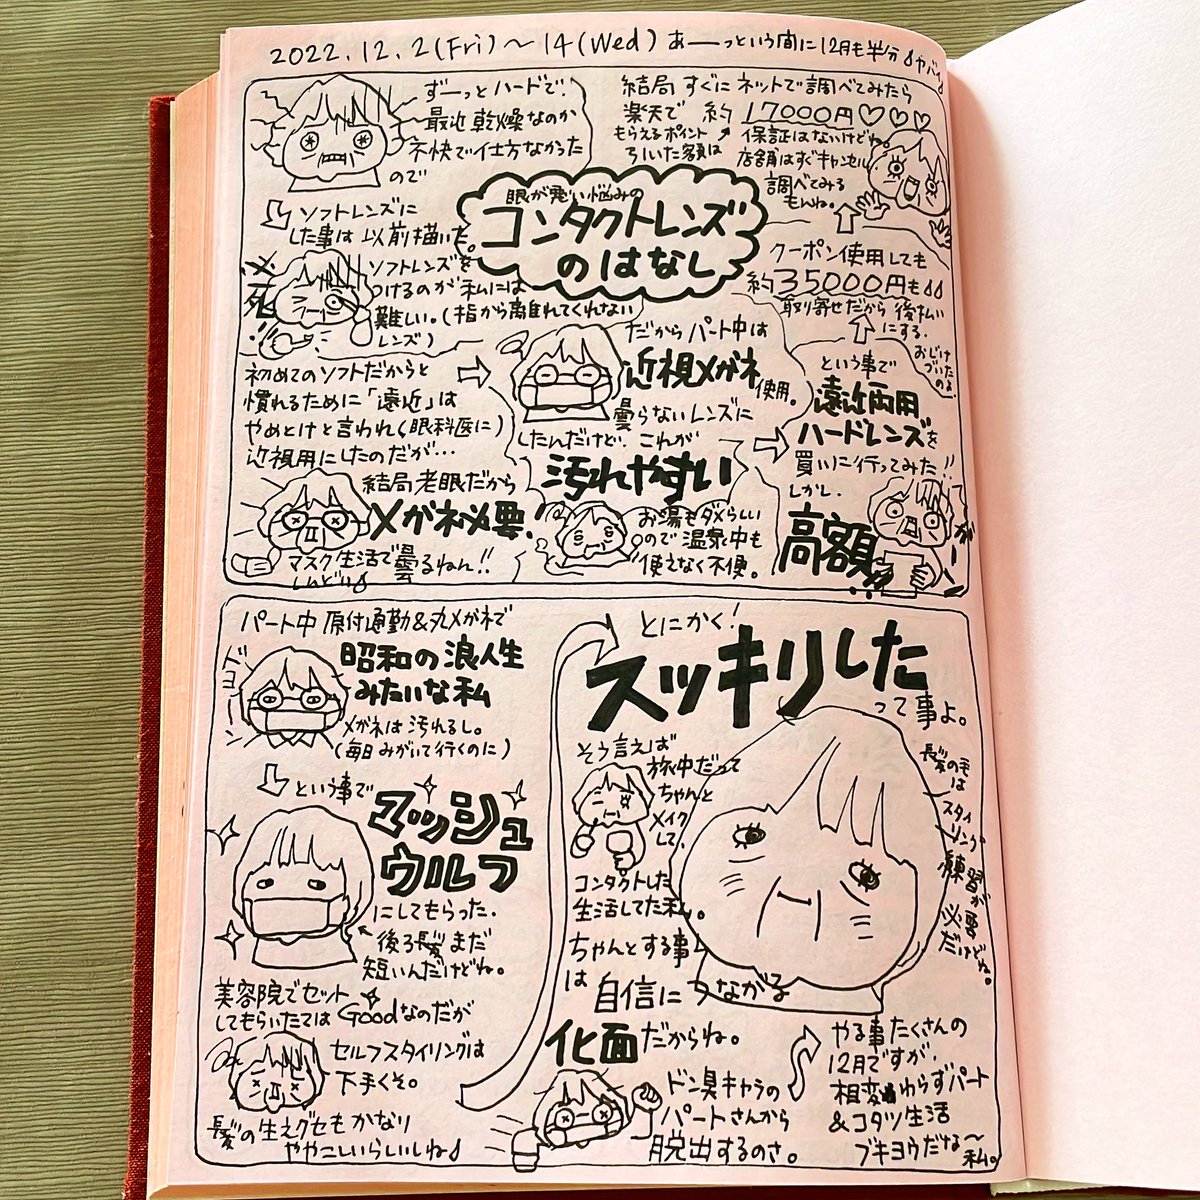 2022.12.2(Fri)〜14(Wed)あーーっという間に12月も半分♪ヤバ♪
ずーっとハードで、
最近乾燥なのか
不快で仕方なかった
ので
ソフトレンズに
した事は以前描いた。
眼が悪い悩みの
コンタクトレンズ
のはなし
必死!!
ソフトレンズを
つけるのが私には
難しい。(指から離れてくれない
レンズ)
初めてのソフトだからと
慣れるために「遠近」は
やめとけと言われ(眼科医に)
近視用にしたのだが…
結局老眼だから
メガネ必要!
マスク生活で曇るねん!!
しんどい♪
だからパート中は
近視メガネ使用。
曇らないレンズに
したんだけど、これが
汚れやすい
お湯もダメらしい
ので温泉中も
使えなく不便。
という事で
遠近両用
ハードレンズを
買いに行ってみた!!
しかし、
高額!!
ガーン
クーポン使用しても
約35000円も♪♪
取り寄せだから後払い
にする。
おじけ
づいた
のよ
結局すぐにネットで調べてみたら
楽天で約17000円♡♡♡
もらえるポイント
引いた額は
保証はないけどね。
店舗はすぐキャンセル
調べてみる
もんね。
パート中原付通勤&丸メガネで
ドヨーン
昭和の浪人生
みたいな私
メガネは汚れるし。
(毎日みがいて行くのに)
という事で
マッシュ
ウルフ
にしてもらった。
後ろ髪まだ
短いんだけどね。
美容院でセット
してもらいたてはGoodなのだが
セルフスタイリングは
下手くそ。
髪の生えグセもかなり
ややこしいらしいしね♪
とにかく!
スッキリした
って事よ。
髪の毛
は
スタイ
リング
練習が
必要
だけどね。
そう言えば
旅中だって
ちゃんと
メイク
して、
コンタクトした
生活してた私。
ちゃんとする事
は自信につながる
化面だからね。
ドン臭キャラの
パートさんから
脱出するのさ。
やる事たくさんの
12月ですが、
相変わらずパート
&コタツ生活
ブキヨウだな〜
私。